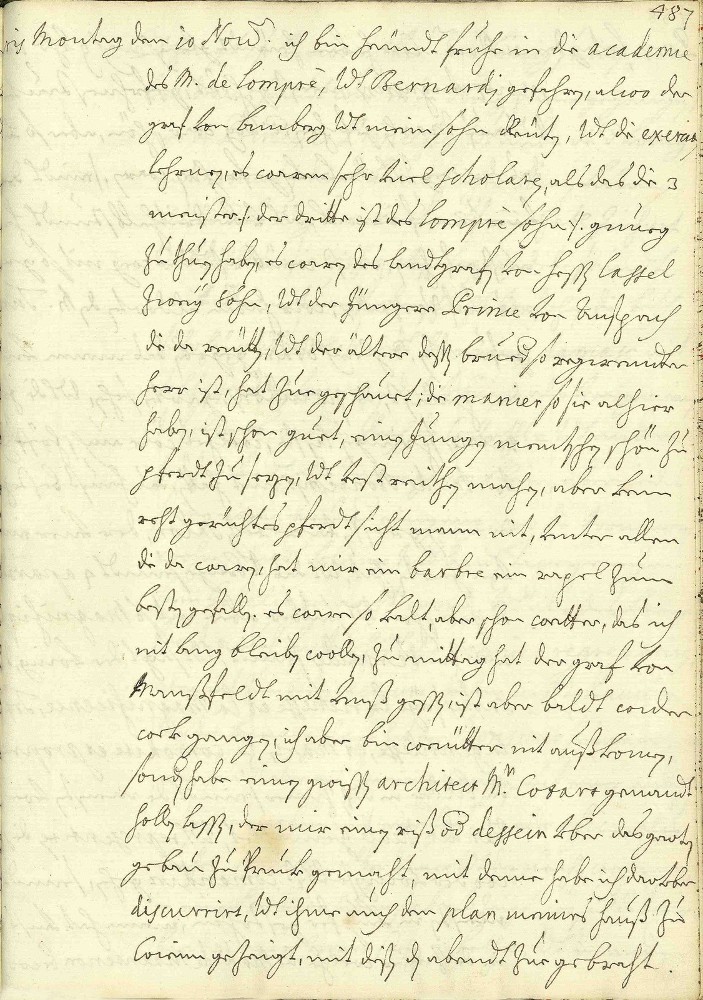 487
Montag den 10 Nov. ich bin heündt frühe in die academie
des M. de Lompré, Vdt Bernardj gefahren, alwo der
graf von Lamberg Vdt mein sohn Reüten, Vdt die exercit
lehrnen, es waren sehr viel scholare, als das die 3
meister /: der dritte ist des Lompré sohn :/ genueg
zu thun haben, es waren des landtgrafen von Hessen Cassel
zweÿ söhn, Vdt der Jüngere Prince von Anspach
die da reütten, Vdt der ältere dessen brueder so regirender
herr ist, hat zuegeschauet; die manier so sie alhier
haben, ist schon guet, einen Jungen menschen schön zu
pferdt zu sezen, Vdt vest reithen machen, aber kein
recht gerichtes pferdt sicht mann nit, Vnter allen
die da waren, hat mir ein barbre ein rapel zum
besten gefallen. es ware so kalt, aber schon wetter, das ich
nit lang bleiben wollen, zu mittag hat der graf von
Manßfeldt mit Vnß gessen, ist aber baldt wider
wek gangen, ich aber bin weiütter nit außkomen,
sondern habe einen gwissen architect Mr. Cotart genandt
hollen lassen, der mir einen riß oder dessein vber das garten
gebäu zu Pruk gemacht, mit deme habe ich darüber
discurrirt, Vdt ihme auch den plan meines hauß zu
Wienn gezeigt, mit disen den abendt zuegebracht.